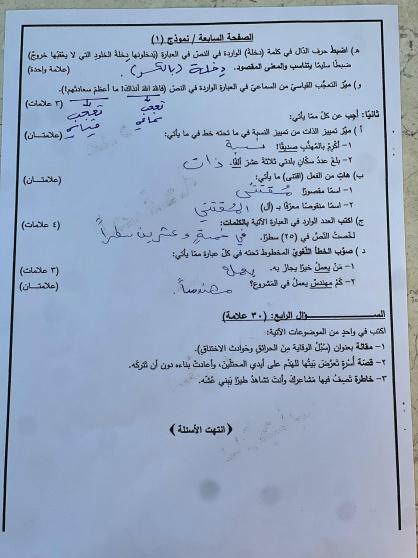 الصفحة السابعة / نموذج (١)
هـ) اضبط حرف الدّال في كلمة (دخلة) الواردة في النصّ في العبارة (يَدخلونها دخلةَ الخلودِ التي لا يعقبُها خروجٌ)
ضبطًا سليمًا يتناسب والمعنى المقصود. دِخلة (بالكسر) (علامة واحدة)
و) ميّز التعجّب القياسي من السماعي في العبارة الواردة في النصّ (فالله الله آنذاك! ما أعظمَ سعادتَهم!). (٣ علامات)
تعجب سماعي
تعجب قياسي
ثانيًا: أجب عن كلّ ممّا يأتي:
أ) ميّز تمييز الذات من تمييز النسبة في ما تحته خط في ما يأتي: (علامتان)
١- أكرِمْ بالمُهذّبِ صديقًا! نسبة
٢- بلغَ عددُ سكانِ بلدتي ثلاثةَ عشرَ ألفًا. ذات
ب) هاتِ من الفعل (اقتنى) ما يأتي: (علامتان)
١- اسمًا مقصورًا. مُقتنَى
٢- اسمًا منقوصًا معرّفًا بـ (أل) المقتني
ج) اكتب العدد الوارد في العبارة الآتية بالكلمات: (٤ علامات)
لخّصتُ النّصَّ في (٢٥) سطرًا. في خمسةٍ وعشرين سطراً
د) صوّب الخطأ اللّغويّ المخطوط تحته في كلّ عبارة ممّا يأتي:
١- مَنْ يعملُ خيرًا يجازَ به. يعملْ (٣ علامات)
٢- كمْ مهندسٍ يعملُ في المشروع؟ مهندساً. (علامتان)
الســــــؤال الرابع: (٣٠ علامة)
اكتب في واحدٍ من الموضوعات الآتية:
١- مقالة بعنوان (سُبُلُ الوقاية مِنَ الحرائق وحوادث الاختناق).
٢- قصّة أسرةٍ تعرّضَ بَيتُها للهدْمِ على أيدي المحتلّين، وأعادتْ بناءه دون أن تتركَه.
٣- خاطرة تَصِفُ فيها مشاعرَك وأنتَ تشاهدُ طيرًا يَبني عُشَّه.
﴿ انتهت الأسئلة ﴾